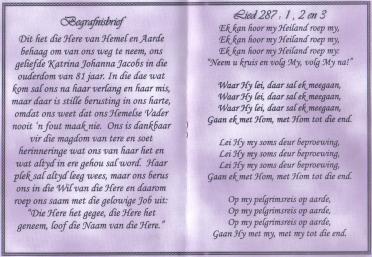 Begrafnisbrief
Dit het die Here van Hemel en Aarde
behaag om van ons weg te neem, ons
geliefde Katrina Johanna Jacobs in die
ouderdom van 81 jaar. In die dae wat
kom sal ons na haar verlang en haar mis,
maar daar is stille berusting in ons harte,
omdat ons weet dat ons Hemelse Vader
nooit 'n fout maak nie. Ons is dankbaar
vir die magdom van tere en soet
herinneringe wat ons van haar het en
wat altyd in ere gehou sal word. Haar
plek sal altyd leeg wees, maar ons berus
ons in die Wil van die Here en daarom
roep ons saam met die gelowige Job uit:
"Die Here het gegee, die Here het
geneem, loof die Naam van die Here."
Lied 287 : 1, 2 en 3
Ek kan hoor my Heiland roep my,
Ek kan hoor my Heiland roep my,
Ek kan hoor my Heiland roep my:
"Neem u kruis en volg My, volg My na!"
Waar Hy lei, daar sal ek meegaan,
Waar Hy lei, daar sal ek meegaan,
Waar Hy lei, daar sal ek meegaan,
Gaan ek met Hom, met Hom tot die end.
Lei Hy my soms deur beproewing,
Lei Hy my soms deur beproewing,
Lei Hy my soms deur beproewing,
Gaan ek met Hom, met Hom tot die end.
Op my pelgrimsreis op aarde,
Op my pelgrimsreis op aarde,
Op my pelgrimsreis op aarde,
Gaan Hy met my, met my tot die end.